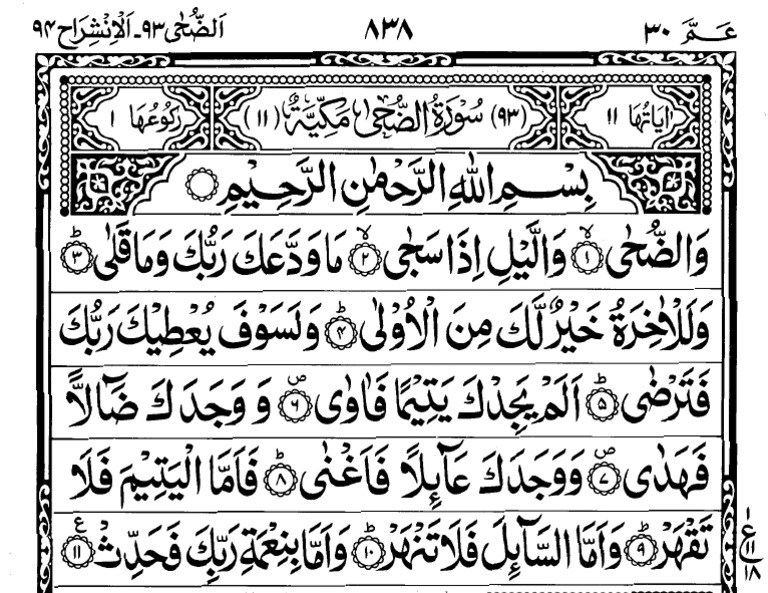 عَمَّ ٣٠ ٨٣٨ اَلضُّحٰى ٩٣ـ اَلْاِنْشِرَاح ٩٤
اٰيَاتُهَا ١١ (٩٣) سُوْرَةُ الضُّحٰى مَكِّيَّةٌ (١١) رُكُوْعُهَا ١
بِسْمِ اللّٰهِ الرَّحْمٰنِ الرَّحِيْمِ ۝
وَالضُّحٰى ۙ‏﴿١﴾ وَالَّيْلِ اِذَا سَجٰى ۙ‏﴿٢﴾ مَا وَدَّعَكَ رَبُّكَ وَمَا قَلٰى ؕ‏﴿٣﴾
وَلَلْاٰخِرَةُ خَيْرٌ لَّكَ مِنَ الْاُوْلٰى ؕ‏﴿٤﴾ وَلَسَوْفَ يُعْطِيْكَ رَبُّكَ
فَتَرْضٰى ؕ‏﴿٥﴾ اَلَمْ يَجِدْكَ يَتِيْمًا فَاٰوٰى ۪‏﴿٦﴾ وَ وَجَدَكَ ضَآلًّا
فَهَدٰى ۪‏﴿٧﴾ وَوَجَدَكَ عَآئِلًا فَاَغْنٰى ؕ‏﴿٨﴾ فَاَمَّا الْيَتِيْمَ فَلَا
تَقْهَرْ ؕ‏﴿٩﴾ وَاَمَّا السَّآئِلَ فَلَا تَنْهَرْ ؕ‏﴿١٠﴾ وَاَمَّا بِنِعْمَةِ رَبِّكَ فَحَدِّثْ ‏﴿١١﴾ ع
ع ١
١١
١٨